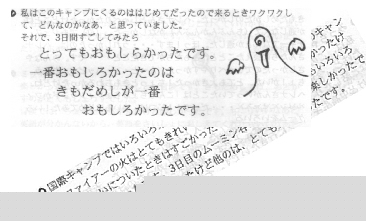 私はこのキャンプにくるのははじめてだったので来るときワクワクし
て、どんなのかなあ、と思っていました。
それで、3日間すごしてみたら
とってもおもしらかったです。
一番おもしろかったのは
きもだめしが一番
おもしろかったです。
国際キャンプではいろいろ
ァイアーの火はとてもきれい
についたときはすごかった
3日目のムーミン谷
たけど他のは、とても
キャン
かったけ
いろいろ
楽しかったで
たです。